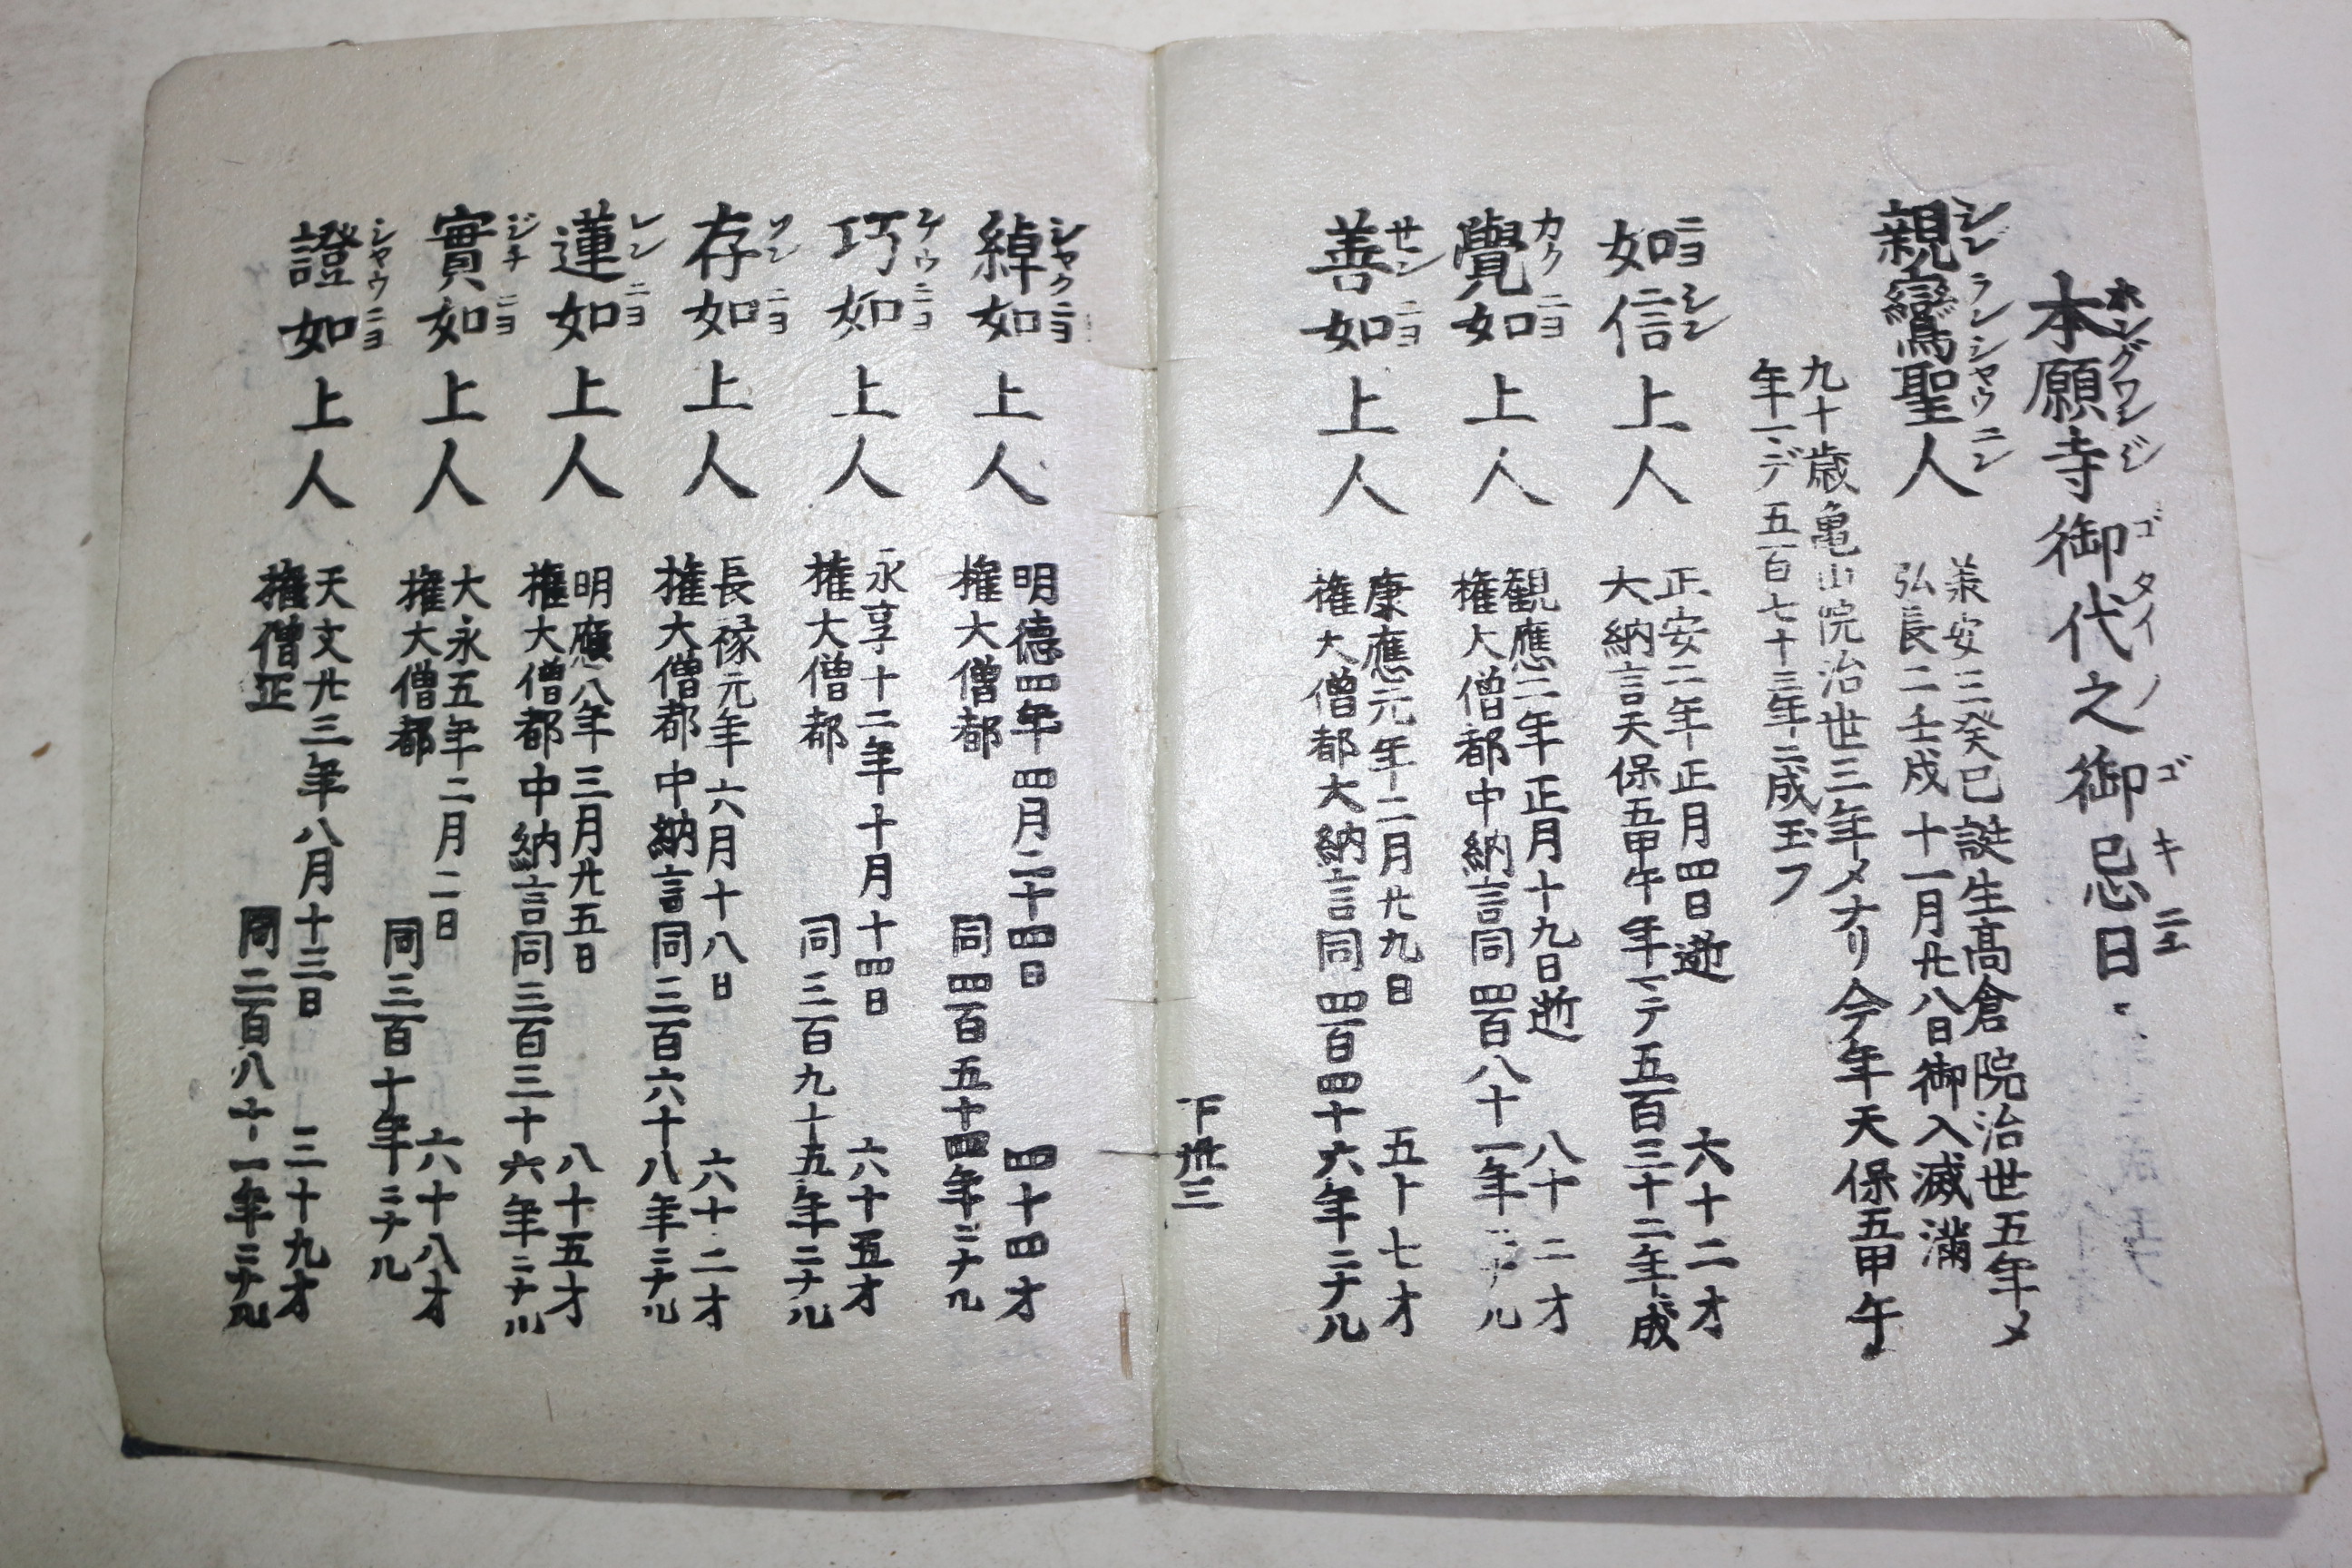 本願寺御代之御忌日
ホングワンジ ゴタイノ ゴキニチ
親鸞聖人
シンランシヤウニン
承安三癸巳誕生高倉院治世五年メ
弘長二壬戌十一月廿八日御入滅満
九十歳亀山院治世三年メナリ今年天保五甲午
年マデ五百七十三年ニ成玉フ
如信上人
ニヨシン
正安二年正月四日逝 六十二才
大納言天保五甲午年マテ五百三十二年成
覺如上人
カクニヨ
観應二年正月十九日逝 八十二才
権大僧都中納言同四百八十一年ニナル
善如上人
ゼンニヨ
康應元年二月廿九日 五十七才
権大僧都大納言同四百四十六年ニナル
下丗三
綽如上人
シヤクニヨ
明徳四年四月二十四日 四十四才
権大僧都 同四百五十四年ニナル
巧如上人
ケウニヨ
永享十二年十月十四日 六十五才
権大僧都 同三百九十五年ニナル
存如上人
ソンニヨ
長禄元年六月十八日 六十二才
権大僧都中納言同三百六十八年ニナル
蓮如上人
レンニヨ
明應八年三月廿五日 八十五才
権大僧都中納言同三百三十六年ニナル
實如上人
ジチニヨ
大永五年二月二日 六十八才
権大僧都 同三百十年ニナル
證如上人
シヤウニヨ
天文廿三年八月十三日 三十九才
権僧正 同二百八十一年ニナル